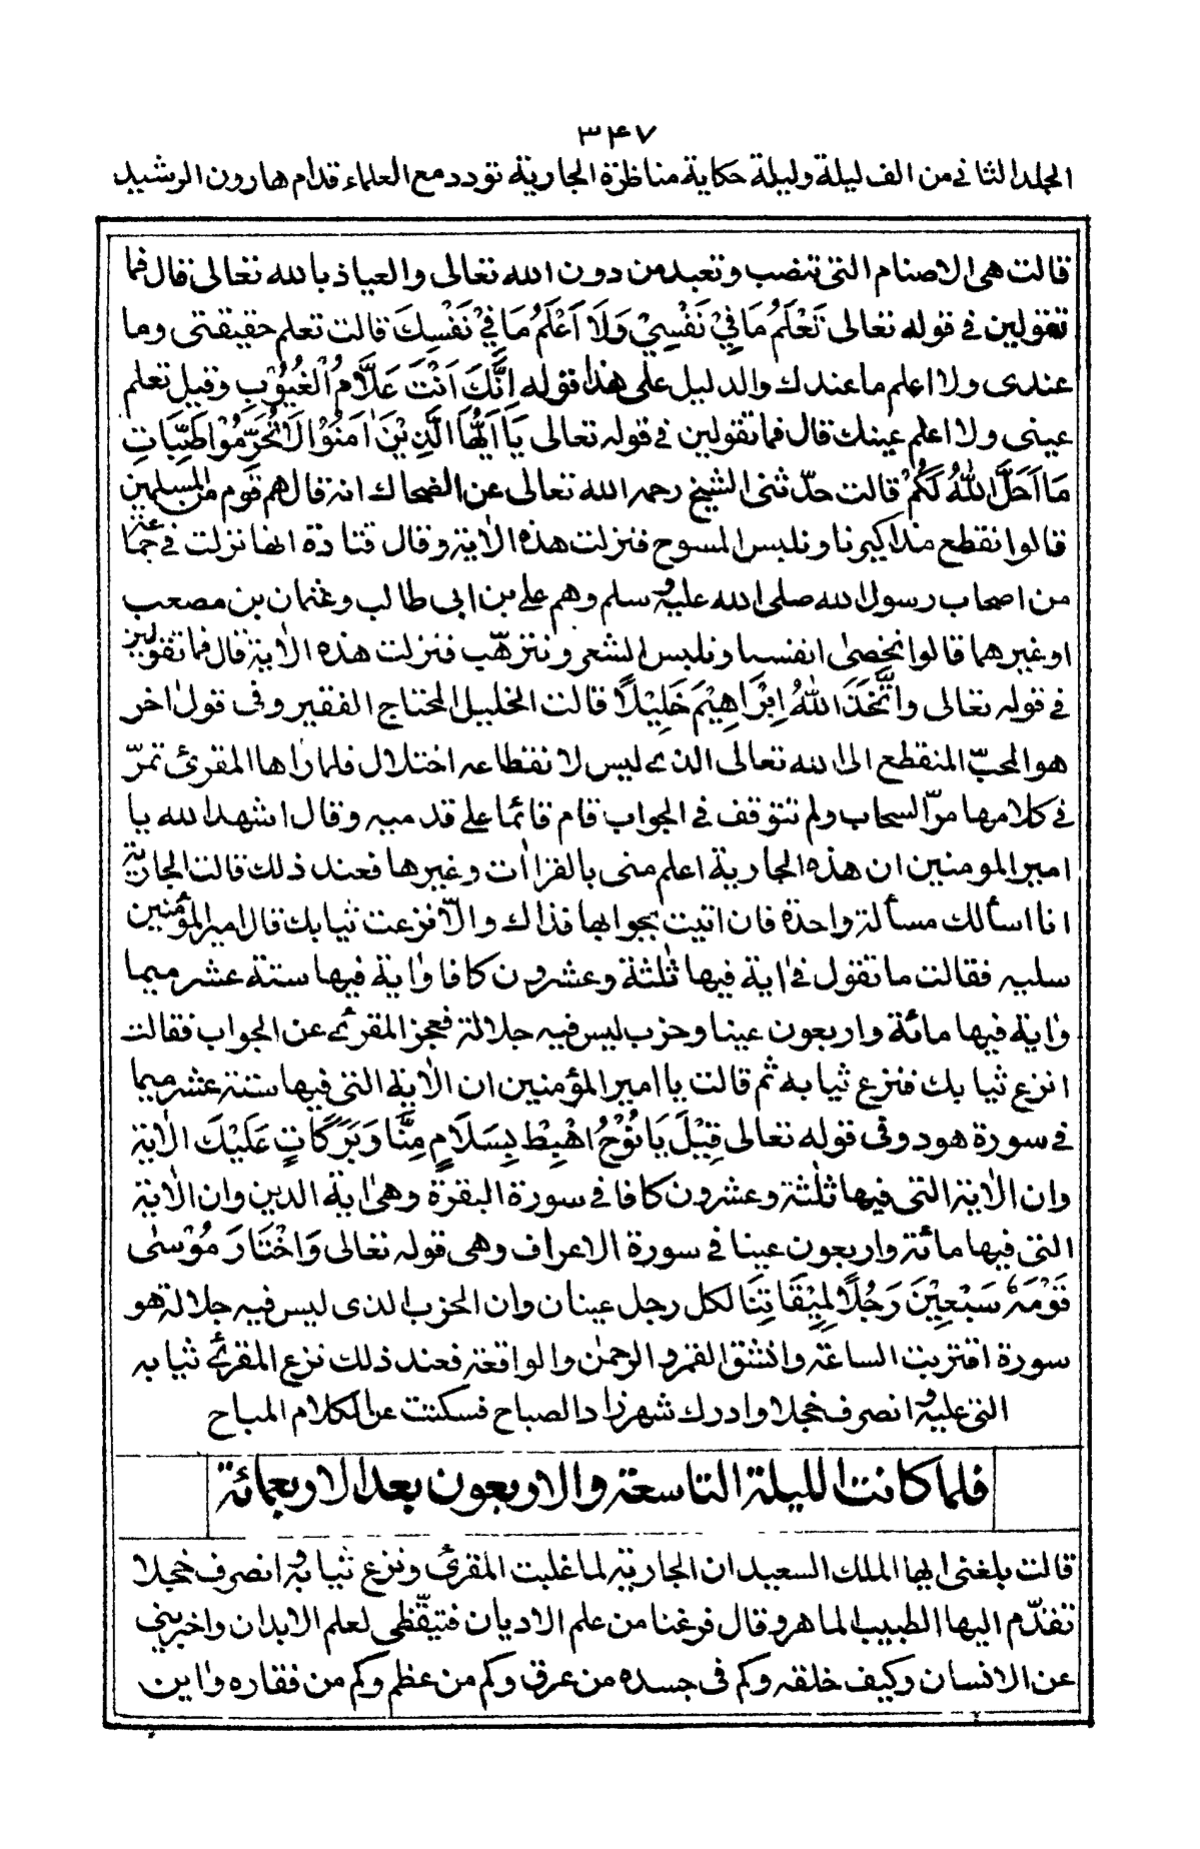 ۳۴۷
المجلد الثانى من الف ليلة وليلة حكاية مناظرة الجارية تودد مع العلماء قدام هارون الرشيد
قالت هى الاصنام التى تنصب وتعبد من دون الله تعالى والعياذ بالله تعالى قال فما
تقولين فى قوله تعالى تَعْلَمُ مَا فِيْ نَفْسِيْ وَلَا اَعْلَمُ مَا فِيْ نَفْسِكَ قالت تعلم حقيقتى وما
عندى ولا اعلم ما عندك والدليل على هذا قوله اِنَّكَ اَنْتَ عَلَّامُ الْغُيُوْبِ وقيل تعلم
عينى ولا اعلم عينك قال فما تقولين فى قوله تعالى يَا اَيُّهَا الَّذِيْنَ اٰمَنُوْا لَا تُحَرِّمُوْا طَيِّبَاتِ
مَا اَحَلَّ اللّٰهُ لَكُمْ قالت حدّثنى الشيخ رحمه الله تعالى عن الضحاك انه قال هم قوم من المسلمين
قالوا نقطع مذاكيرنا ونلبس المسوح فنزلت هذه الاٰية وقال قتادة انها نزلت فى جماعة
من اصحاب رسول الله صلى الله عليه وسلم وهم على بن ابى طالب وعثمان بن مصعب
او غيرهما قالوا نخصى انفسنا ونلبس الشعر ونترهّب فنزلت هذه الاٰية قال فما تقولين
فى قوله تعالى وَاتَّخَذَ اللّٰهُ اِبْرَاهِيْمَ خَلِيْلًا قالت الخليل المحتاج الفقير وفى قول اٰخر
هو المحبّ المنقطع الى الله تعالى الذى ليس لانقطاعه اختلال فلما راٰها المقرئ تمرّ
فى كلامها مرّ السحاب ولم تتوقف فى الجواب قام قائما على قدميه وقال اشهد الله يا
امير المومنين ان هذه الجارية اعلم منى بالقراٰات وغيرها فعند ذلك قالت الجارية
انا اسألك مسألة واحدة فان اتيت بجوابها فذاك والّا نزعت ثيابك قال امير المؤمنين
سليه فقالت ما تقول فى اٰية فيها ثلٰثة وعشرون كافا واٰية فيها ستة عشر ميما
واٰية فيها مائة واربعون عينا وحزب ليس فيه جلالة فعجز المقرئ عن الجواب فقالت
انزع ثيابك فنزع ثيابه ثم قالت يا امير المؤمنين ان الاٰية التى فيها ستة عشر ميما
فى سورة هود وفى قوله تعالى قِيْلَ يَا نُوْحُ اهْبِطْ بِسَلَامٍ مِنَّا وَبَرَكَاتٍ عَلَيْكَ الاٰية
وان الاٰية التى فيها ثلٰثة وعشرون كافا فى سورة البقرة وهى اٰية الدين وان الاٰية
التى فيها مائة واربعون عينا فى سورة الاعراف وهى قوله تعالى وَاخْتَارَ مُوْسٰى
قَوْمَهٗ سَبْعِيْنَ رَجُلًا لِمِيْقَاتِنَا لكل رجل عينان وان الحزب الذى ليس فيه جلالة هو
سورة اقتربت الساعة وانشق القمر والرحمٰن والواقعة فعند ذلك نزع المقرئ ثيابه
التى عليه وانصرف خجلا وادرك شهرزاد الصباح فسكتت عن الكلام المباح
فلما كانت الليلة التاسعة والاربعون بعد الاربعمائة
قالت بلغنى ايها الملك السعيد ان الجارية لما غلبت المقرئ ونزع ثيابه وانصرف خجلا
تقدّم اليها الطبيب الماهر وقال فرغنا من علم الاديان فتيقّظى لعلم الابدان واخبرينى
عن الانسان وكيف خلقه وكم فى جسده من عرق وكم من عظم وكم من فقاره واين